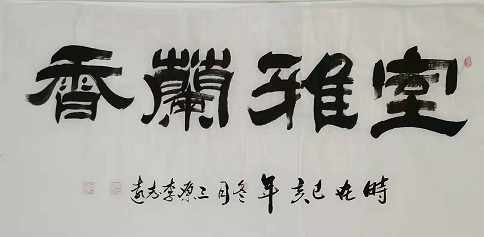 室雅蘭香
時在己亥年冬月三原李志遠